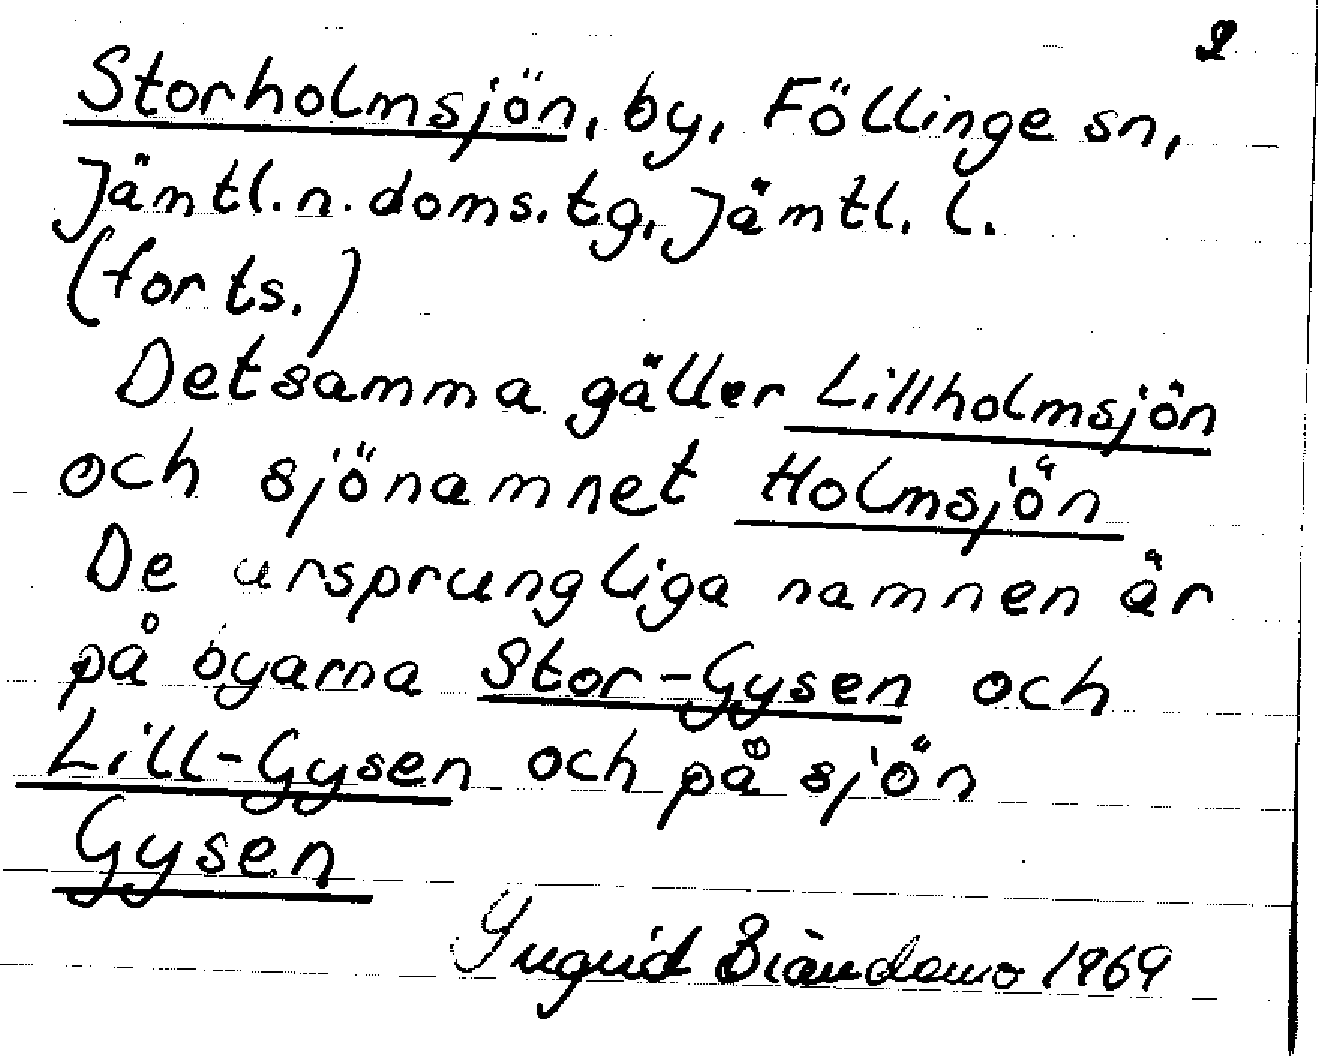 2
Storholmsjön, by, Föllinge sn,
Jämtl. n. doms. tg, Jämtl. l.
(forts.)
Detsamma gäller Lillholmsjön
och sjönamnet Holmsjön
De ursprungliga namnen är
på byarna Stor-Gysen och
Lill-Gysen och på sjön
Gysen
Ingrid 1969